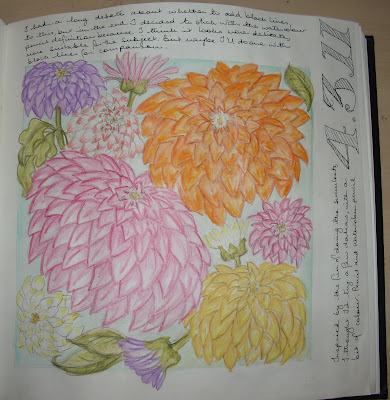 I had a long debate about whether to add black lines
to this but in the end I decided to stick with the watercolour
pencil definition because I think it looks more delicate
and suitable for the subject. But maybe I'll do one with
black lines for comparison.
4.3.11
Inspired by the fun of doing the
I thought I'd try a few dahlias, with a
bit of colour. Pencil and watercolour pencil